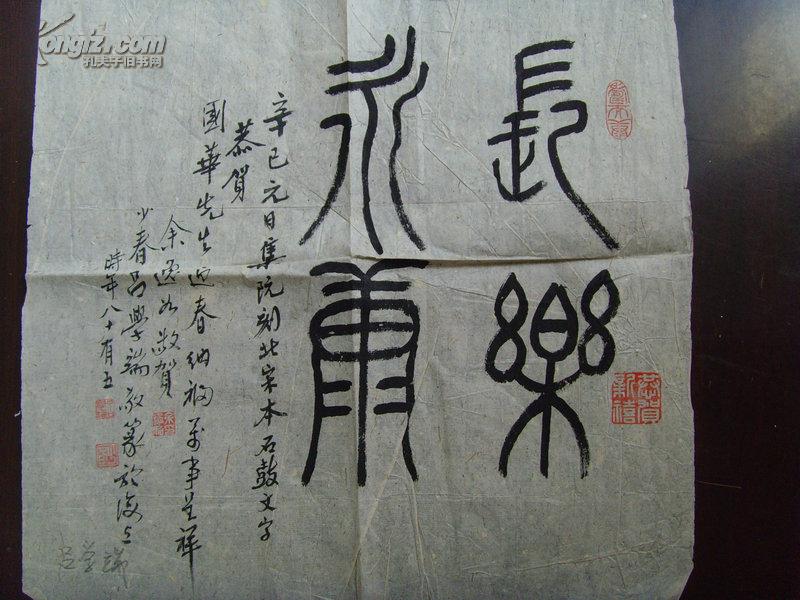 長樂
永康
辛巳元日集阮刻北宋本石鼓文字
恭賀
國華先生迎春納福萬事呈祥
余逸如敬賀
少春呂學端敬篆於滬上
時年八十有五
恭賀新禧
吕学端
Kongfz.com
孔夫子旧书网